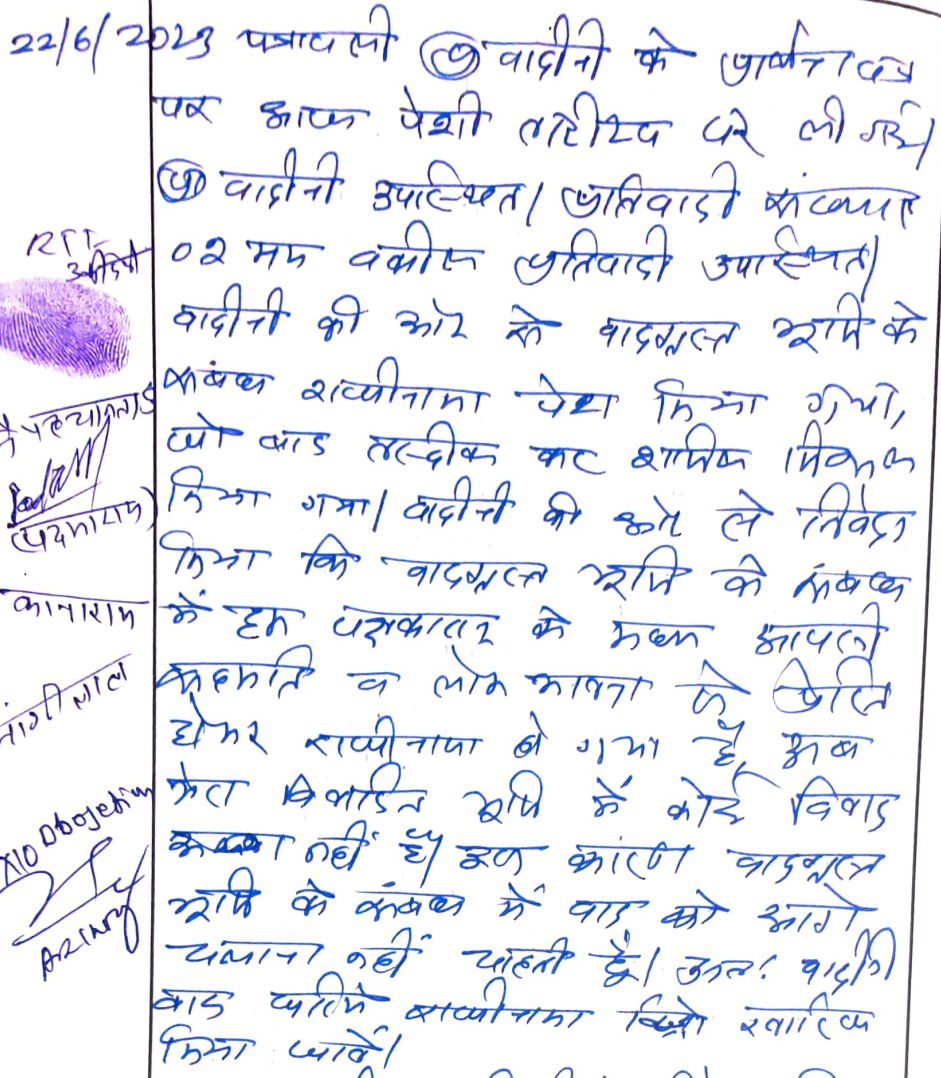 22/6/2023 पत्रावली वादीनी के प्रार्थना पत्र
पर आज पेशी तारीख पर ली गई।
वादीनी उपस्थित। प्रतिवादी संख्या
02 मय वकील प्रतिवादी उपस्थित।
वादीनी की ओर से वादग्रस्त भूमि के
संबंध राजीनामा पेश किया गया,
जो बाद तस्दीक कर शामिल मिसल
किया गया। वादीनी की ओर से निवेदन
किया कि वादग्रस्त भूमि के संबंध
में हम पक्षकारान के मध्य आपसी
सहमति व लोक भावना से प्रेरित
होकर राजीनामा हो गया है, अब
मेरा विवादित भूमि में कोई विवाद
नहीं है। इस कारण वादग्रस्त
भूमि के संबंध में वाद को आगे
चलाना नहीं चाहती है। अतः वादीनी
वाद जरिये राजीनामा खारिज
किया जावें।
RTI
पदमाराम)
कानाराम
मांगीलाल
NO Obojection